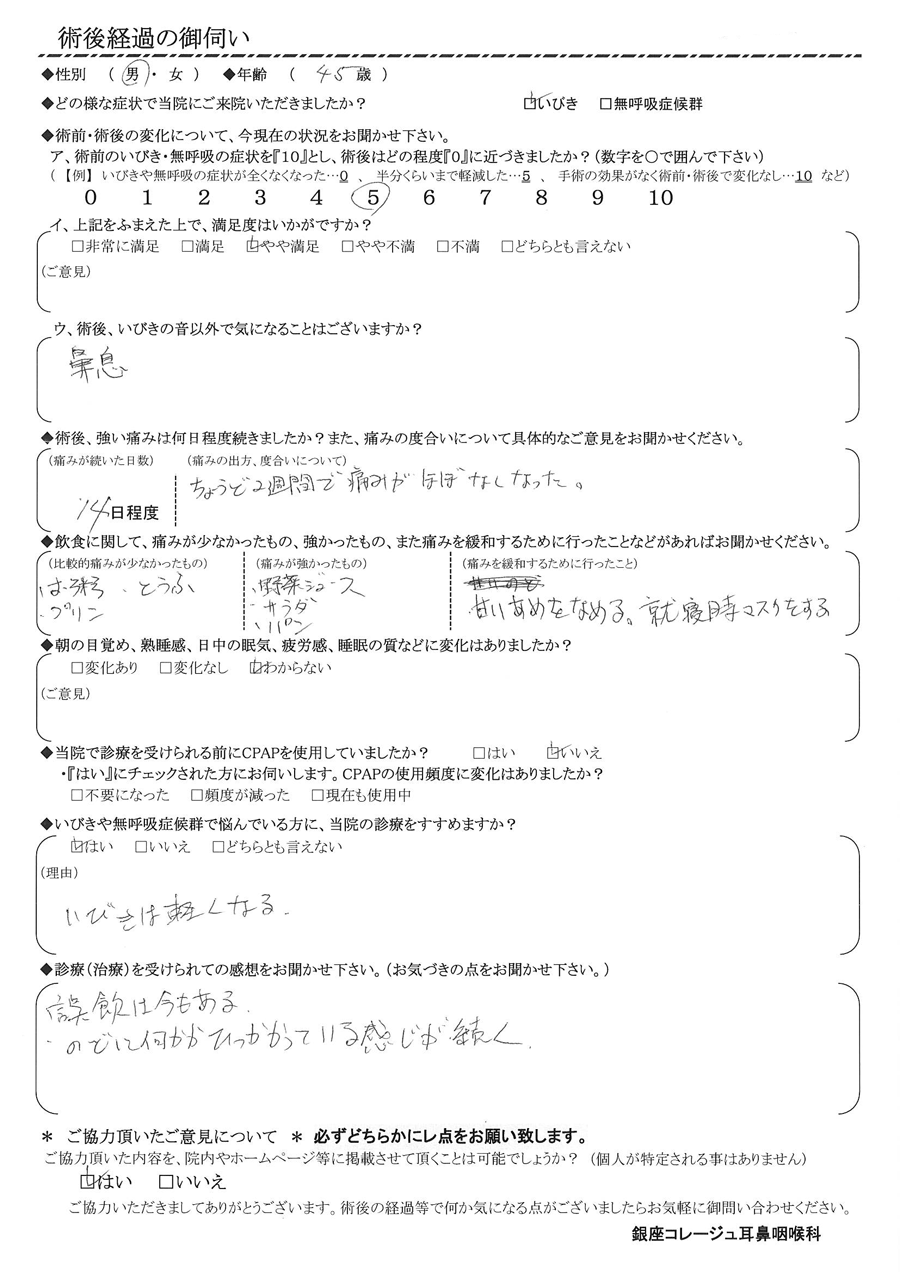 術後経過の御伺い
◆性別 （ 男 ・ 女 ） ◆年齢 （ 45 歳 ）
◆どの様な症状で当院にご来院いただきましたか？ ☑いびき □無呼吸症候群
◆術前・術後の変化について、今現在の状況をお聞かせ下さい。
ア、術前のいびき・無呼吸の症状を『10』とし、術後はどの程度『0』に近づきましたか？（数字を○で囲んで下さい）
（ 【例】 いびきや無呼吸の症状が全くなくなった…0 、 半分くらいまで軽減した…5 、 手術の効果がなく術前・術後で変化なし…10 など）
0 1 2 3 4 5 6 7 8 9 10
イ、上記をふまえた上で、満足度はいかがですか？
□非常に満足 □満足 ☑やや満足 □やや不満 □不満 □どちらとも言えない
（ご意見）
ウ、術後、いびきの音以外で気になることはございますか？
鼻息
◆術後、強い痛みは何日程度続きましたか？また、痛みの度合いについて具体的なご意見をお聞かせください。
（痛みが続いた日数） （痛みの出方、度合いについて）
ちょうど2週間で痛みがほぼなくなった。
14日程度
◆飲食に関して、痛みが少なかったもの、強かったもの、また痛みを緩和するために行ったことなどがあればお聞かせください。
（比較的痛みが少なかったもの） （痛みが強かったもの） （痛みを緩和するために行ったこと）
・お粥 ・とうふ ・野菜ジュース
・プリン ・サラダ 甘いあめをなめる。就寝時マスクをする
・パン
◆朝の目覚め、熟睡感、日中の眠気、疲労感、睡眠の質などに変化はありましたか？
□変化あり □変化なし ☑わからない
（ご意見）
◆当院で診療を受けられる前にCPAPを使用していましたか？ □はい ☑いいえ
・『はい』にチェックされた方にお伺いします。CPAPの使用頻度に変化はありましたか？
□不要になった □頻度が減った □現在も使用中
◆いびきや無呼吸症候群で悩んでいる方に、当院の診療をすすめますか？
☑はい □いいえ □どちらとも言えない
（理由）
いびきは軽くなる．
◆診療（治療）を受けられての感想をお聞かせ下さい。（お気づきの点をお聞かせ下さい。）
・誤飲は今もある．
・のどに何かがひっかかっている感じが続く．
＊ ご協力頂いたご意見について ＊ 必ずどちらかにレ点をお願い致します。
ご協力頂いた内容を、院内やホームページ等に掲載させて頂くことは可能でしょうか？ （個人が特定される事はありません）
☑はい □いいえ
ご協力いただきましてありがとうございます。術後の経過等で何か気になる点がございましたらお気軽に御問い合わせください。
銀座コレージュ耳鼻咽喉科